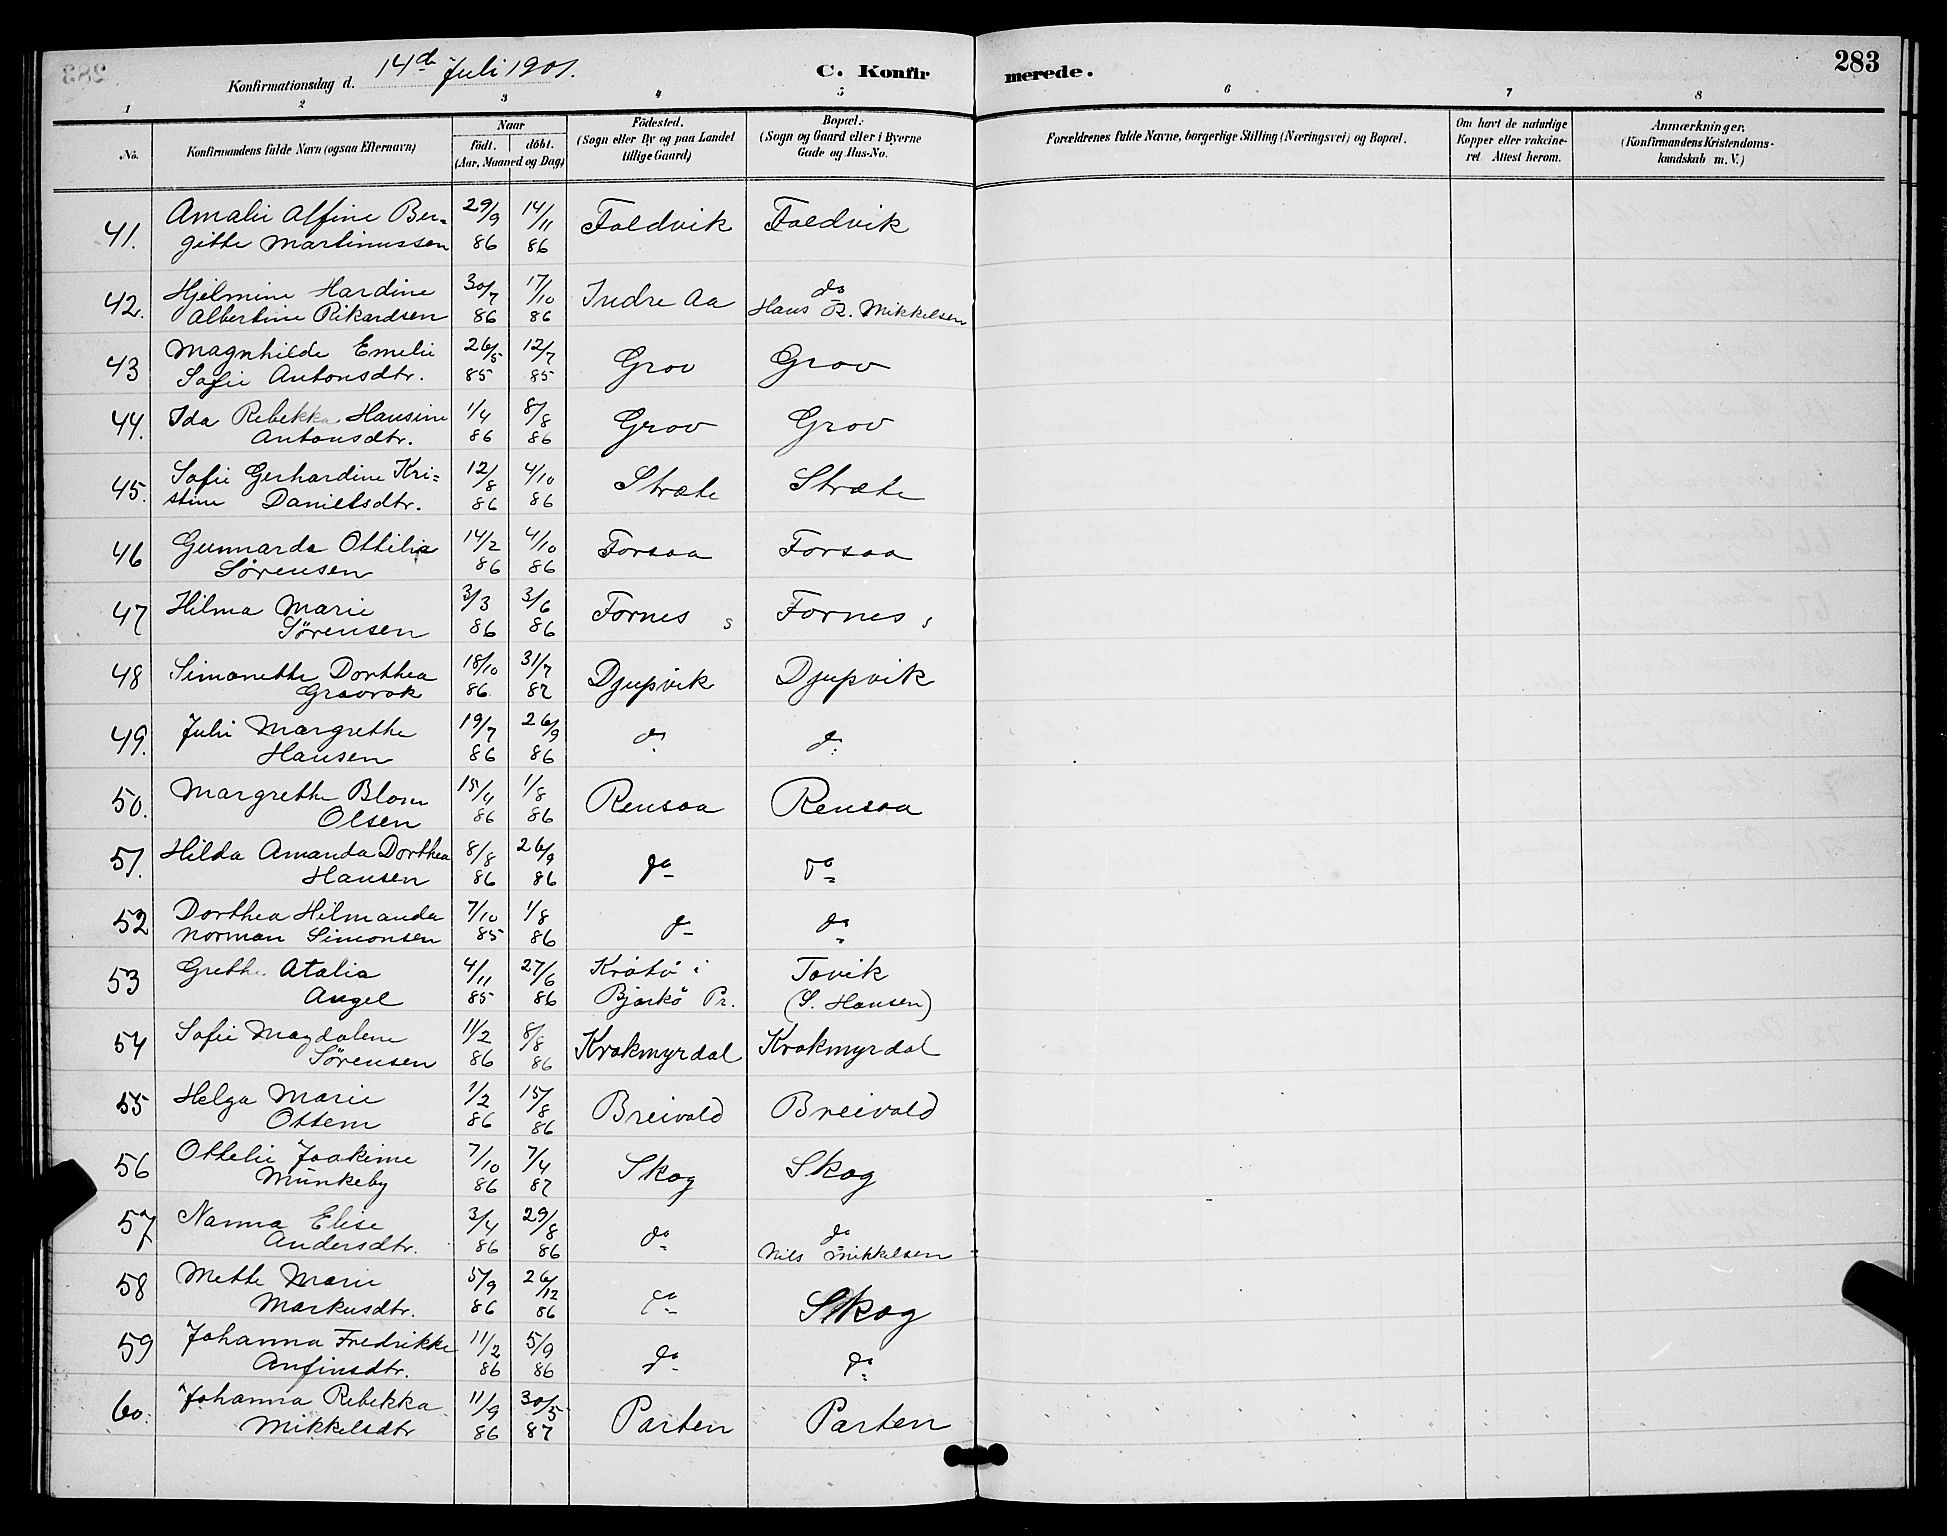 283
Konfirmationsdag d. 14de Juli 1901.
C. Konfirmerede.
1 2 3 4 5 6 7 8
No.
Konfirmandens fulde Navn (ogsaa Efternavn)
Naar
födt. döbt.
(Aar, Maaned og Dag)
Födested.
(Sogn eller By og paa Landet
tillige Gaard)
Bopæl:
(Sogn og Gaard eller i Byerne
Gade og Hus-No.
Forældrenes fulde Navne, borgerlige Stilling (Næringsvei) og Bopæl.
Om havt de naturlige
Kopper eller vakcine-
ret. Attest herom.
Anmærkninger.
(Konfirmandens Kristendoms-
kundskab m. V.)
41. Amalie Alfine Ber= 29/9 14/11 Foldvik Foldvik
gitte Martinussen 86 86
42. Hjelmine Hardine 30/7 17/10 Indre Aa do
Albertine Rikardsen 86 86 Hans R. Mikkelsen
43 Magnhilde Emelie 26/5 12/7 Grov Grov
Sofie Antonsdtr. 85 85
44. Ida Rebekka Hansine 1/4 8/8 Grov Grov
Antonsdtr. 86 86
45. Sofie Gerhardine Kri= 12/8 4/10 Stræte Stræte
stine Danielsdtr. 86 86
46 Gunnarda Ottilia 14/2 4/10 Forsaa Forsaa
Sørensen 86 86
47 Hilma Marie 3/3 3/6 Fornes s Fornes s
Sørensen 86 86
48 Simonette Dorthea 18/10 31/7 Djupvik Djupvik
Graovok 86 87
49. Juli Margrethe 19/7 26/9 do do
Hansen 86 86
50. Margrethe Blom 15/4 1/8 Rensaa Rensaa
Olsen 86 86
51. Hilda Amanda Dorthea 8/8 26/9 do do
Hansen 86 86
52 Dorthea Hilmanda 7/10 1/8 do do
Norman Simonsen 85 86
53 Grethe Atalia 4/11 27/6 Kråtö i Tovik
Angel 85 86 Bjarkö Pr. (S. Hansen)
54 Sofie Magdalene 11/2 8/8 Krokmyrdal Krokmyrdal
Sørensen 86 86
55 Helga Marie 1/2 15/8 Breivold Breivold
Ottem 86 86
56 Ottelie Joakime 7/10 7/4 Skog Skog
Munkeby 86 87
57 Nanna Elise 3/4 29/8 do do
Andersdtr. 86 86 Nils Mikkelsen
58 Mette Marie 5/9 26/12 do Skog
Markusdtr. 86 86
59 Johanna Fredrikke 11/2 5/9 do do
Anfinsdtr. 86 86
60. Johanna Rebekka 11/9 30/5 Parten Parten
Mikkelsdtr 86 87